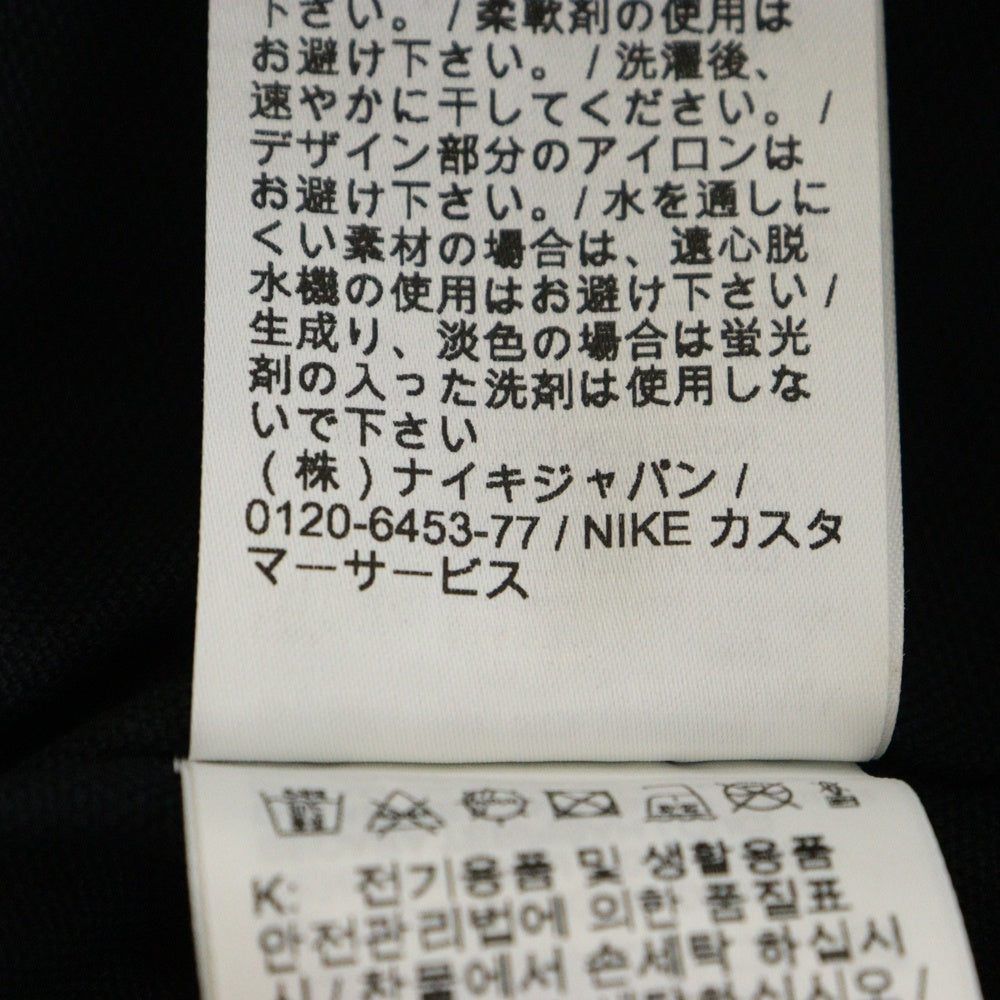 下さい。 / 柔軟剤の使用は
お避け下さい。 / 洗濯後、
速やかに干してください。 /
デザイン部分のアイロンは
お避け下さい。 / 水を通しに
くい素材の場合は、遠心脱
水機の使用はお避け下さい /
生成り、淡色の場合は蛍光
剤の入った洗剤は使用しな
いで下さい
(株)ナイキジャパン /
0120-6453-77 / NIKE カスタ
マーサービス
K: 전기용품 및 생활용품
안전관리법에 의한 품질표
시 / 찬물에서 손세탁 하십시